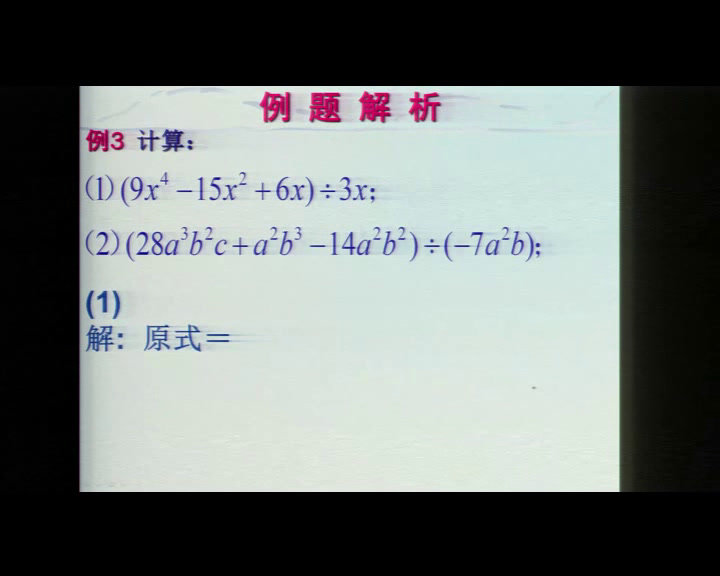 例 题 解 析
例3 计算：
(1)(9x⁴－15x²＋6x)÷3x；
(2)(28a³b²c＋a²b³－14a²b²)÷(－7a²b)；
(1)
解：原式＝